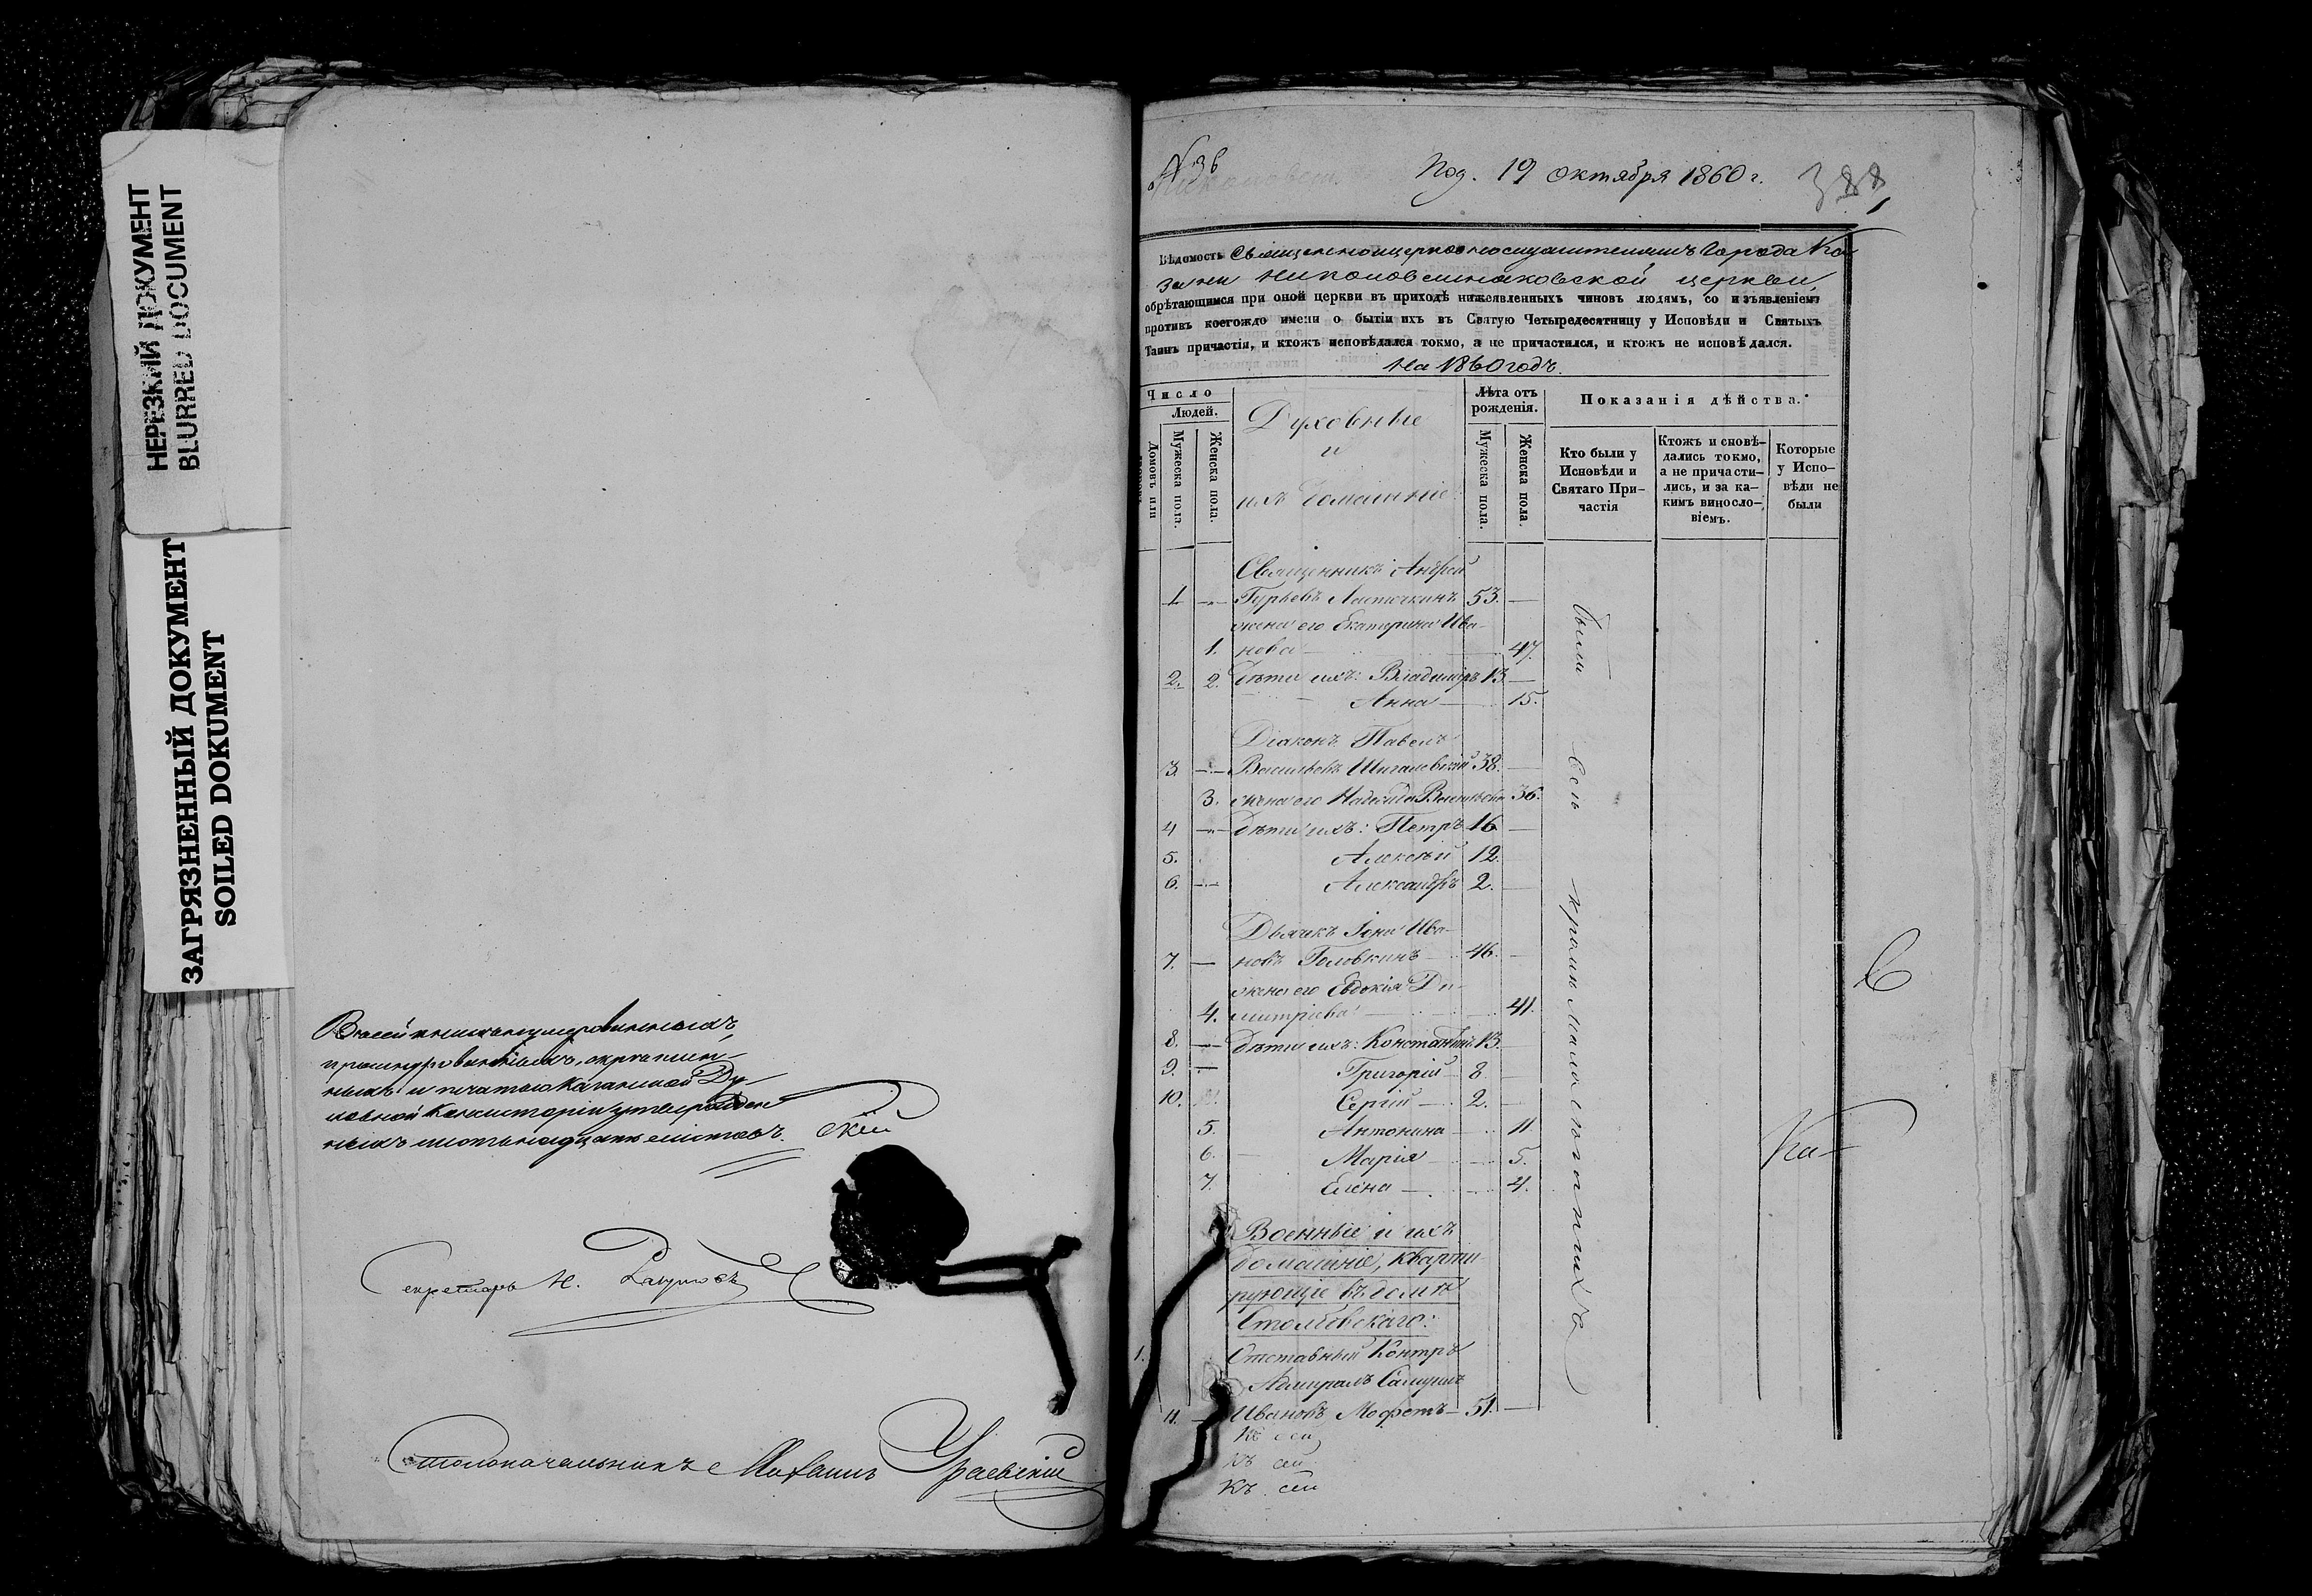 НЕРЕЗКИЙ ДОКУМЕНТ
BLURRED DOCUMENT
ЗАГРЯЗНЕННЫЙ ДОКУМЕНТ
SOILED DOKUMENT
Въ сей книге нумерованныхъ,
прошнурованныхъ, скреплен-
ныхъ и печатью Казанской Ду-
ховной Консисторіи утвержден-
ныхъ листовъ.
Секретарь Н.
Столоначальникъ Михаилъ
№ 36
Под. 19 октября 1860 г.
388
Вѣдомость Священноцерковнослужителямъ Города Ка-
зани церкви,
обрѣтающимся при оной церкви въ приходѣ нижеявленныхъ чиновъ людямъ, со изъявленіемъ
противъ коегождо имени о бытіи ихъ въ Святую Четыредесятницу у Исповѣди и Святыхъ
Таинъ причастія, и ктожъ исповѣдался токмо, а не причастился, и ктожъ не исповѣдался.
На 1860 годъ.
Число
Людей.
Домовъ или
Мужеска пола.
Женска пола.
Духовные
и
ихъ домашніе
Лѣта отъ
рожденія.
Мужеска пола.
Женска пола.
Показанія дѣйства.
Кто были у
Исповѣди и
Святаго При-
частія
Ктожъ исповѣ-
дались токмо,
а не причасти-
лись, и за ка-
кимъ винносло-
віемъ.
Которые
у Испо-
вѣди не
были
Священникъ Андрей
1 Гурьевъ Ласточкинъ 53.
жена его Екатерина Ива-
1. нова 47.
2. 2. Дѣти ихъ: Владиміръ 13.
Анна 15.
Діаконъ Павелъ
3. Васильевъ 38.
3. жена его Надежда Васильева 36.
4 Дѣти ихъ: Петръ 16
5. Алексѣй 12.
6. Александръ 2.
Дьячекъ Іона Ива-
7. новъ Головкинъ 46.
жена его Евдокія Ди-
4. митріева 41.
8. Дѣти ихъ: Константинъ 13.
9. Григорій 8
10. Сергій 2.
5. Антонина 11
6. Марія 5.
7. Елена 4.
были всѣ кромѣ малолѣтнихъ
Военные и ихъ
домашніе, кварти-
рующіе въ домѣ
1. Отставный Контръ
Адмиралъ Самуилъ
11. Ивановъ Мофетъ 51.
Къ сей
Къ сей
Къ сей
С
Ка-